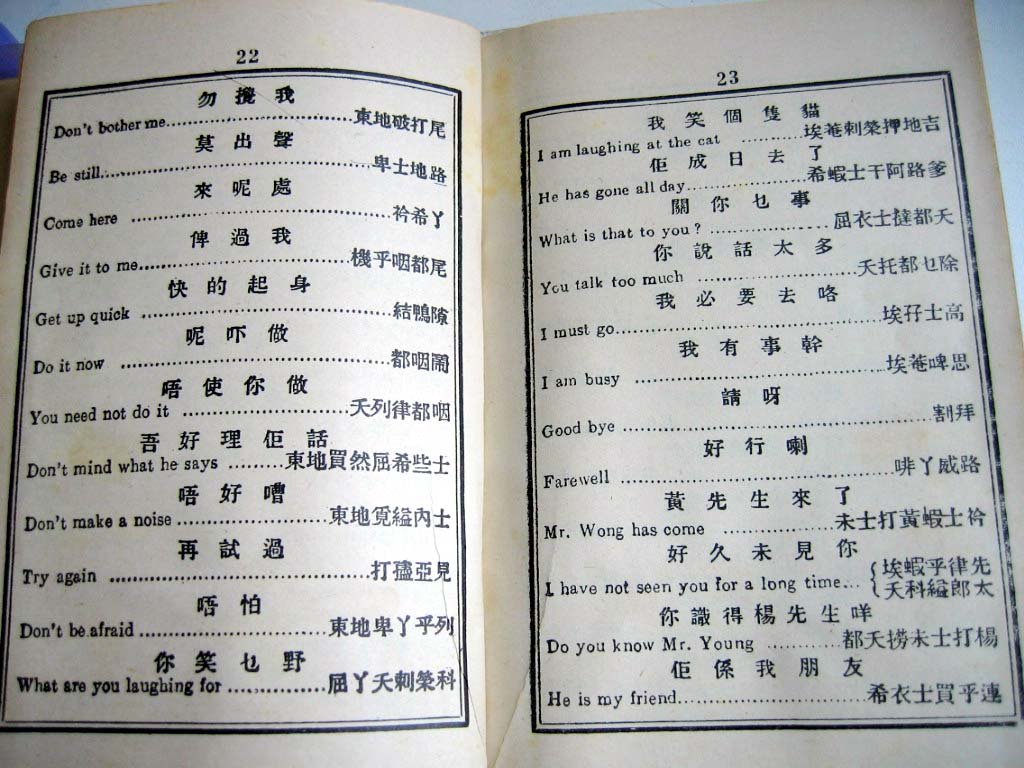 22
勿攪我
Don't bother me..................東地破打尾
莫出聲
Be still..................卑士地路
來呢處
Come here ..................衿希丫
俾過我
Give it to me..................機乎咽都尾
快的起身
Get up quick ..................結鴨隙
呢吓做
Do it now ..................都咽鬧
唔使你做
You need not do it ..................天列律都咽
吾好理佢話
Don't mind what he says ........東地買然屈希些士
唔好嘈
Don't make a noise..................東地覓縊內士
再試過
Try again ..................打孻亞見
唔怕
Don't be afraid..................東地卑丫乎列
你笑乜野
What are you laughing for ..............屈丫天剌榮科
23
我笑個隻貓
I am laughing at the cat ..................埃菴剌榮押地吉
佢成日去了
He has gone all day..................希蝦士干阿路爹
關你乜事
What is that to you? ..................屈衣士撻都天
你說話太多
You talk too much ..................天托都乜除
我必要去咯
I must go..................埃孖士高
我有事幹
I am busy ..................埃菴啤思
請呀
Good bye ..................割拜
好行喇
Farewell ..................啡丫威路
黃先生來了
Mr. Wong has come ..................未士打黃蝦士衿
好久未見你
I have not seen you for a long time... { 埃蝦乎律先
天科縊郎太
你識得楊先生咩
Do you know Mr. Young ..........都天撈未士打楊
佢係我朋友
He is my friend..................希衣士買乎連